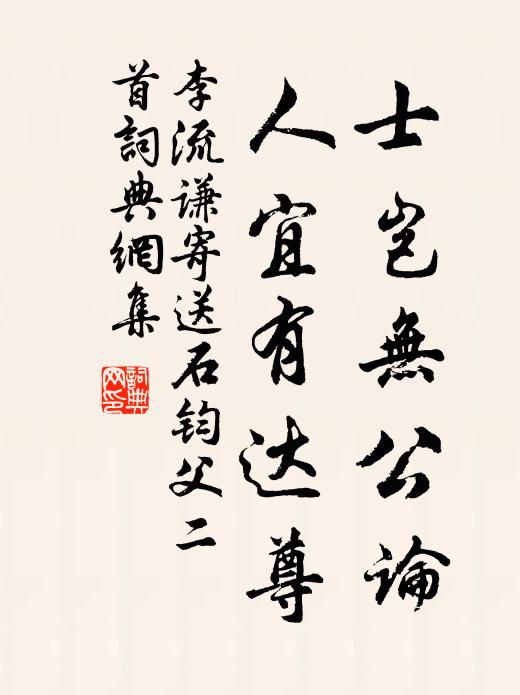 士岂無公論
人宜有达尊
李流谦寄送石钧父二
首詞典網集
詞典
网印